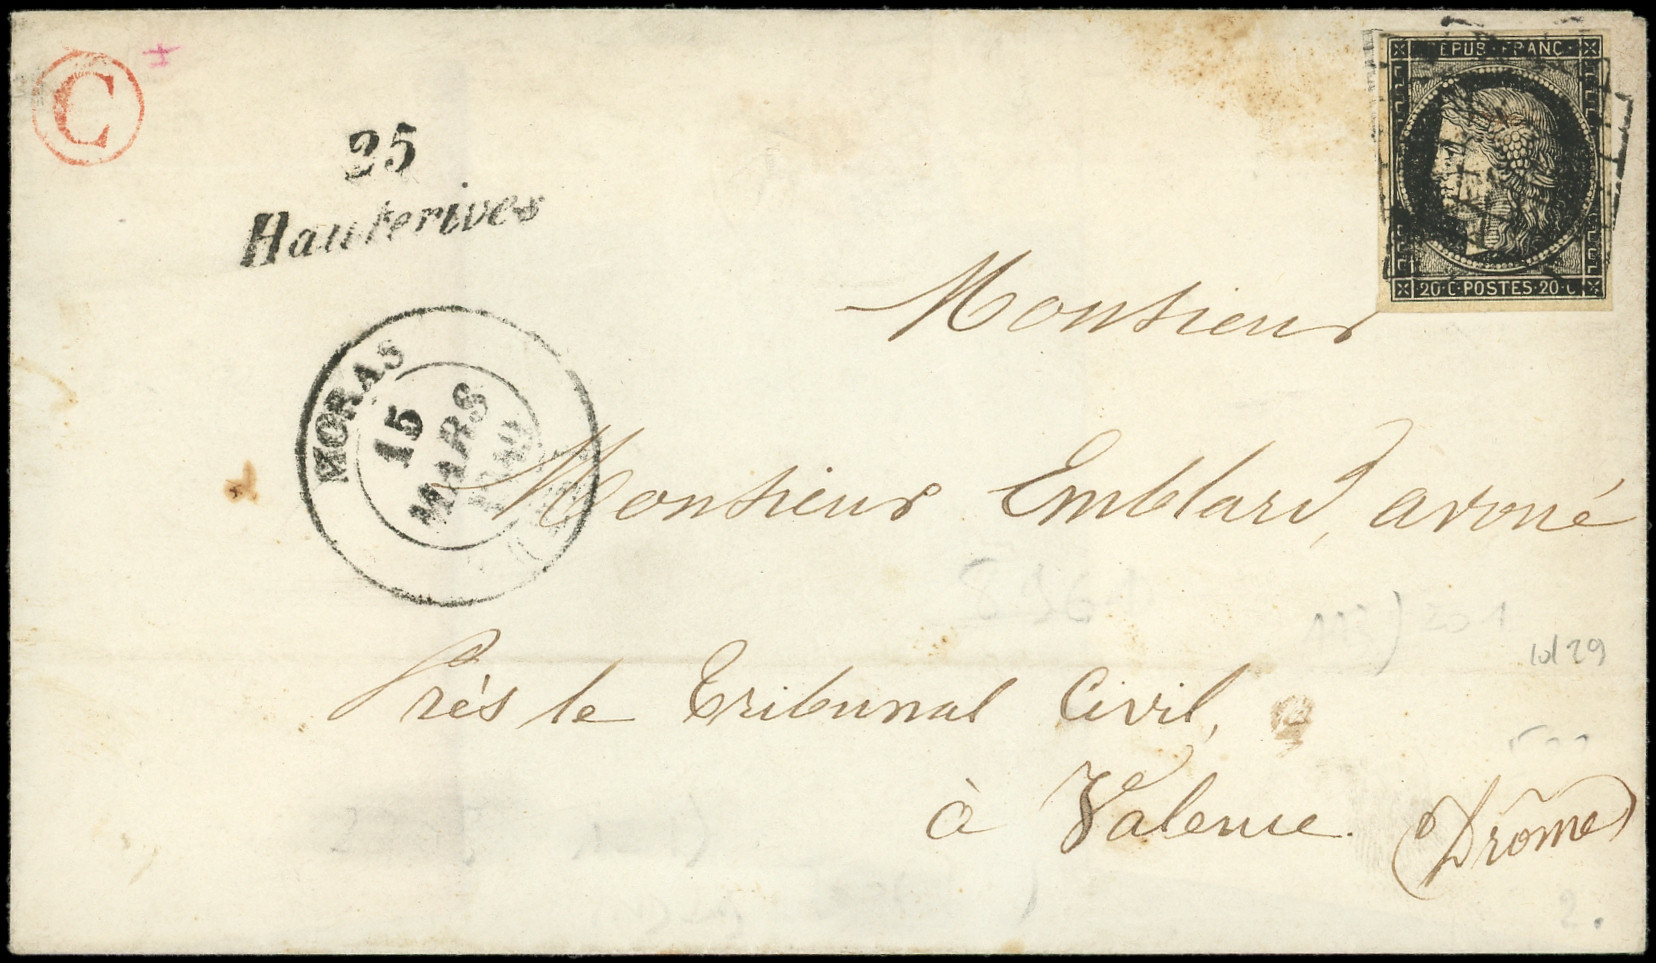 C
25
Hauterives
REPUB · FRANC ·
20 · C · POSTES · 20 · C
MORAS
15
MARS
Monsieur
Monsieur Emblard, avoué
Près le Tribunal Civil,
à Valence. (Drôme)
lot 29
2.